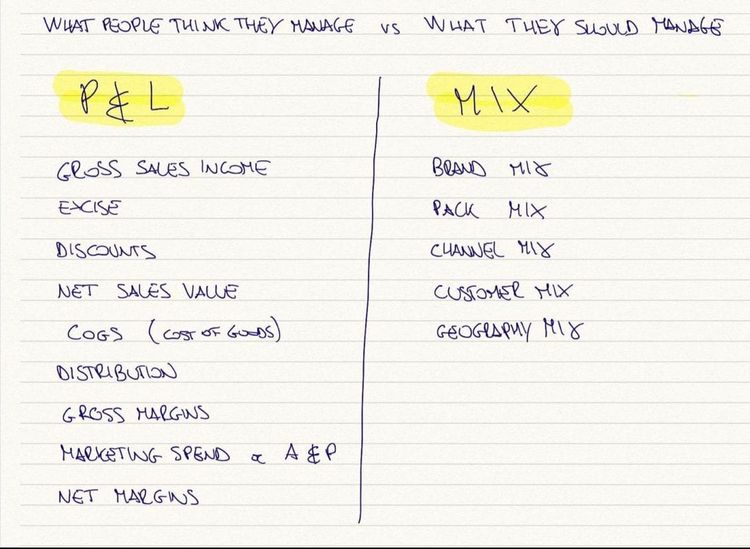 WHAT PEOPLE THINK THEY MANAGE vs WHAT THEY SHOULD MANAGE
P & L
GROSS SALES INCOME
EXCISE
DISCOUNTS
NET SALES VALUE
COGS (COST OF GOODS)
DISTRIBUTION
GROSS MARGINS
MARKETING SPEND or A & P
NET MARGINS
MIX
BRAND MIX
PACK MIX
CHANNEL MIX
CUSTOMER MIX
GEOGRAPHY MIX